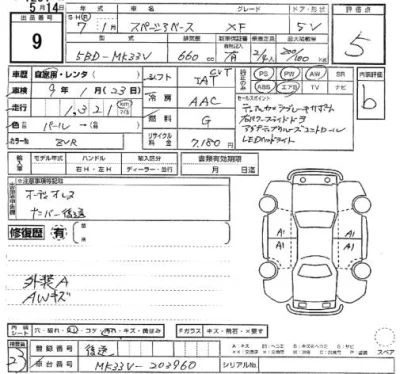 5月14日
出品番号 年式 車名 グレード ドア・形状 評価点
9 7 1月 スペーシアベース XF 5V 5
型式 排気量
5BD-MK33V 660cc 2/4人 200/100kg
車歴 自家用・レンタ シフト CVT PS PW AW SR 内装評価
車検 9年1月(23日) エアB TV ナビ b
走行 1,321 km 冷房 AAC セールスポイント
デュアルセンサーブレーキサポート
色 パール→(色) 燃料 G 右パワースライドドア
アダプティブクルーズコントロール
カラー№ ZVR リサイクル料金 7,180円 LEDヘッドライト
輸入車 モデル年式 ハンドル 輸入区分 書類有効期限
年 右H・左H ディーラー・並行 月 日迄
※注意事項等記入
オーディオレス
ナンバー後送
修復歴 有
A1 A1
A1 A1
外装A
AWキズ
内装 シート 穴・破れ コゲ 汚れ・キズ Fガラス キズ・飛石・×要す
スペア
23 登録番号 後送
車台番号 MK33V-203960 シリアル№